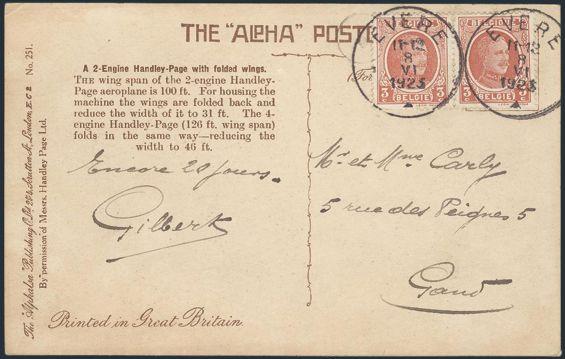 THE "ALPHA" POSTC
A 2-Engine Handley-Page with folded wings.
THE wing span of the 2-engine Handley-
Page aeroplane is 100 ft. For housing the
machine the wings are folded back and
reduce the width of it to 31 ft. The 4-
engine Handley-Page (126 ft. wing span)
folds in the same way—reducing the
width to 46 ft.
Encore 20 jours.
Gilbert
Printed in Great Britain.
No. 251.
By permission of Messrs. Handley Page Ltd.
(For
EVERE
11-12
8
VI
1923
3 BELGIE 3
EVERE
11-12
8
VI
1923
BELGIE
Mr et Mme Carly
5 rue des Peignes 5
Gand